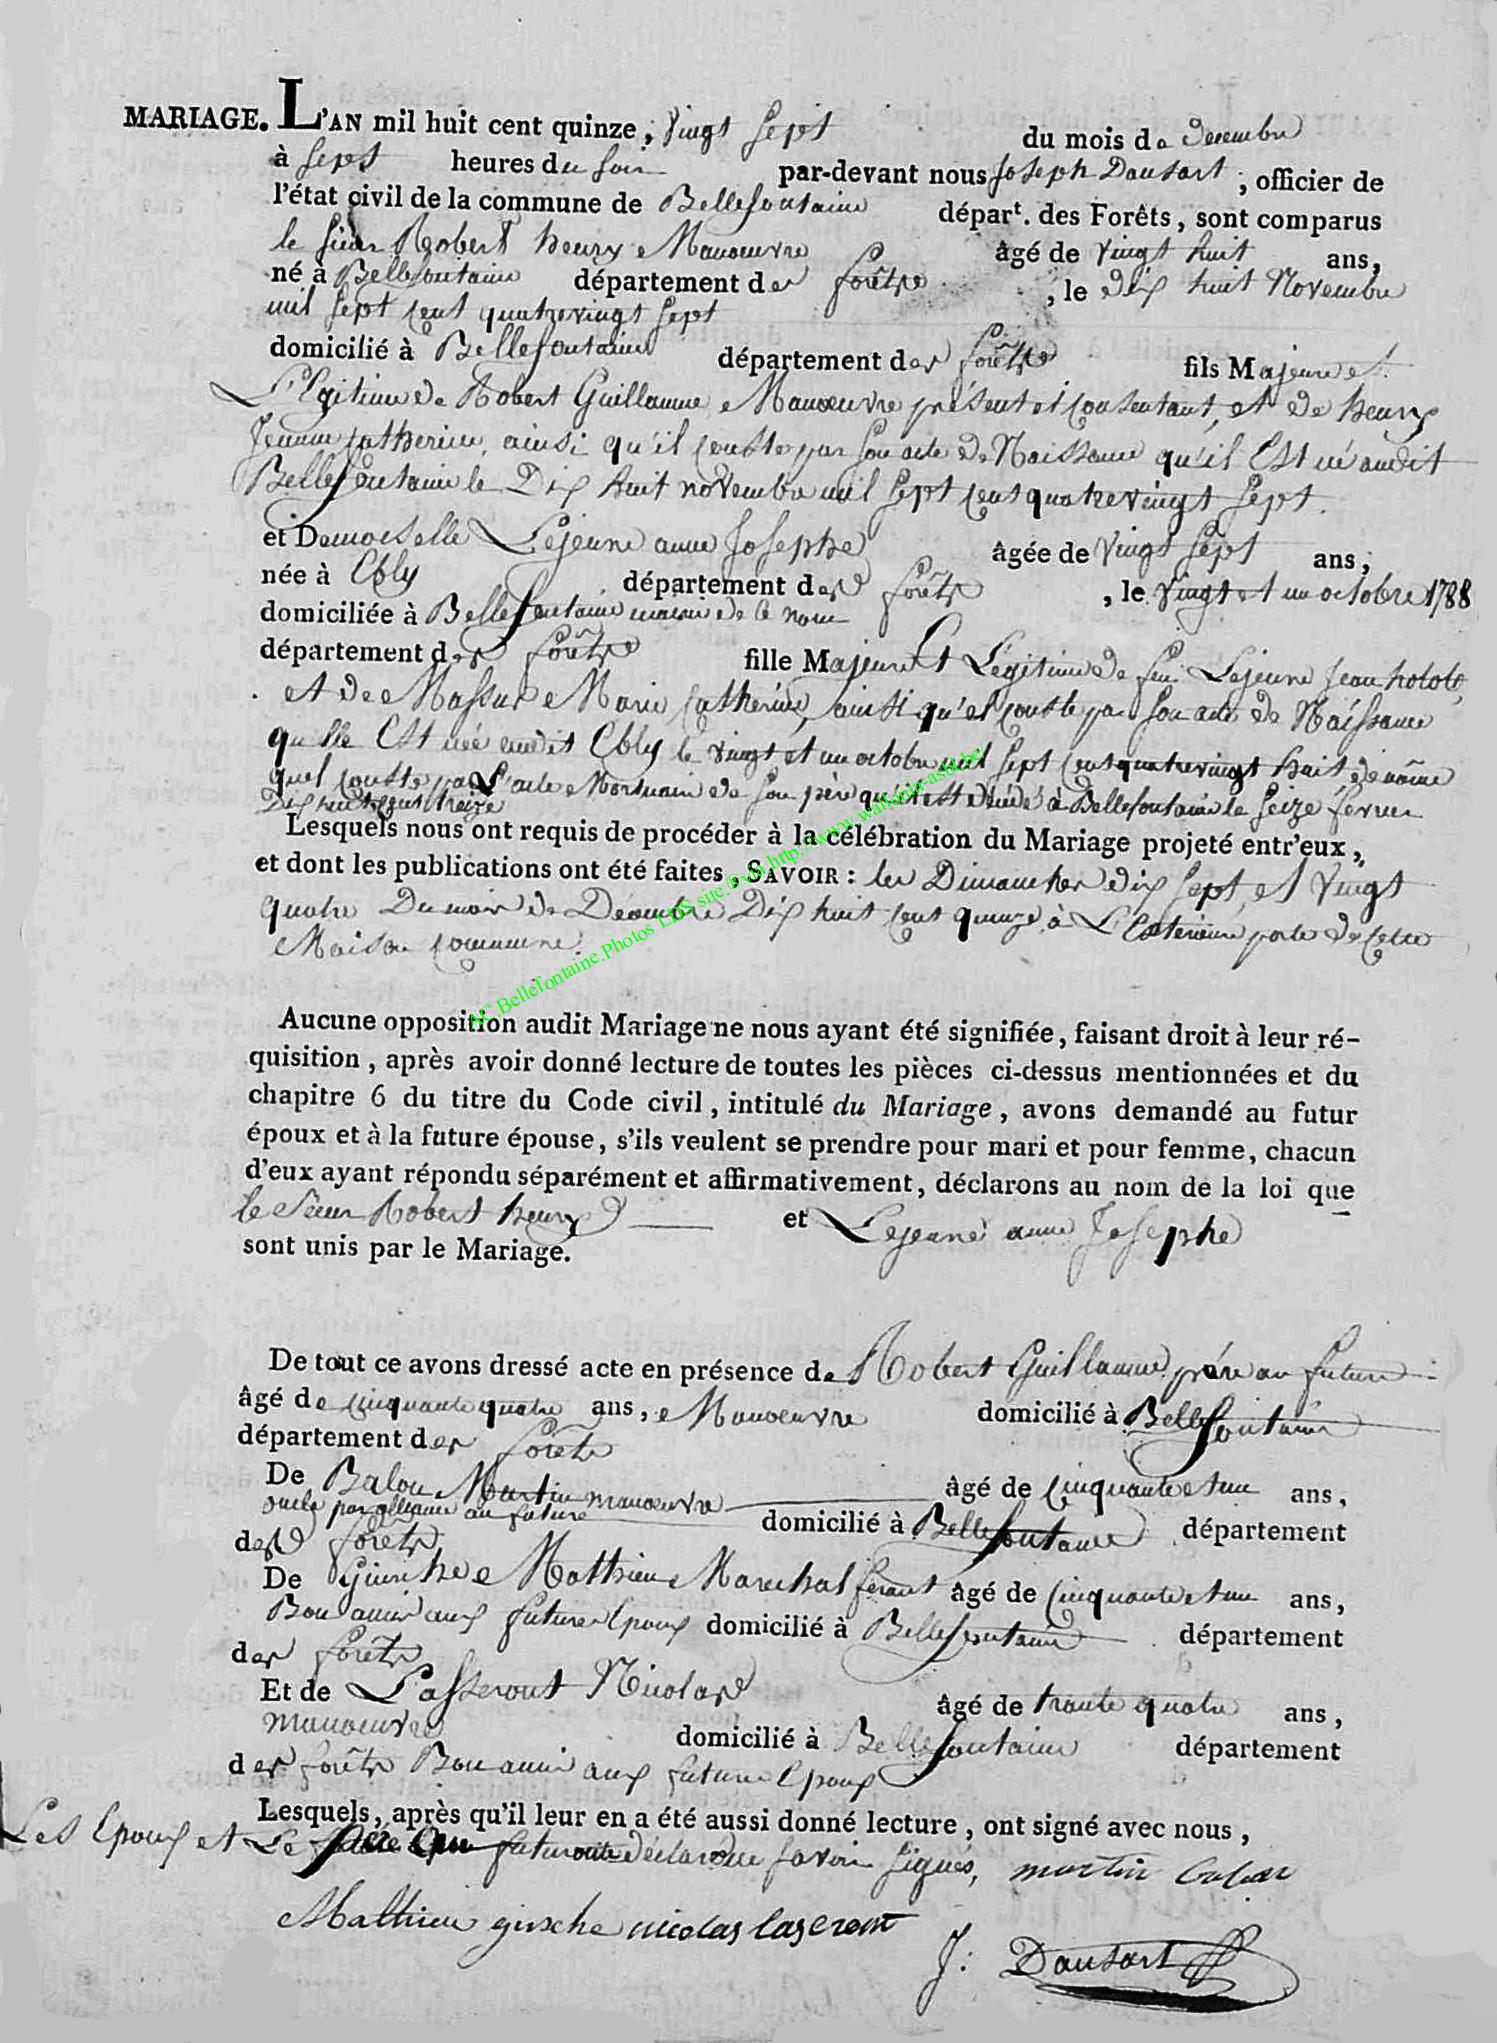 MARIAGE. L'AN mil huit cent quinze, vingt sept du mois de Decembre
à sept heures du soir par-devant nous Joseph Dausart, officier de
l'état civil de la commune de Bellefontaine départ. des Forêts, sont comparus
le sieur Robert henry Manoeuvre âgé de vingt huit ans,
né à Bellefontaine département des forêts, le dix huit Novembre
mil sept cent quatrevingt sept
domicilié à Bellefontaine département des forêts fils Majeur et
Légitime de Robert Guillaume Manoeuvre présent et consentant, et de henry
Jeanne Catherine, ainsi qu'il conste par son acte de Naissance qu'il Est né audit
Bellefontaine le Dix huit novembre mil sept cent quatrevingt sept.
et Demoiselle Lejeune anne Josephe âgée de vingt sept ans,
née à Ebly département des forêts, le vingt et un octobre 1788
domiciliée à Bellefontaine mairie de ce nom
département des forêts fille Majeure Et Légitime de feu Lejeune Jean
et de Massut Marie Catherine, ainsi qu'el conste par son acte de Naissance
qu'elle Est née audit Ebly le vingt et un octobre mil sept cent quatrevingt huit, de même
quel conste par L'acte Mortuaire de son père qu'il est décédé à Bellefontaine le seize fevrier
Dix huit cent treize
Lesquels nous ont requis de procéder à la célébration du Mariage projeté entr'eux,
et dont les publications ont été faites, SAVOIR : les Dimanches dix sept, et vingt
quatre Du mois de Decembre Dix huit cent quinze, à L'Exterieure porte de cette
Maison commune.
AC.Bellefontaine.Photos LDS site © http://www.wallonia-asbl.be/
Aucune opposition audit Mariage ne nous ayant été signifiée, faisant droit à leur ré-
quisition, après avoir donné lecture de toutes les pièces ci-dessus mentionnées et du
chapitre 6 du titre du Code civil, intitulé du Mariage, avons demandé au futur
époux et à la future épouse, s'ils veulent se prendre pour mari et pour femme, chacun
d'eux ayant répondu séparément et affirmativement, déclarons au nom de la loi que
le Sieur Robert henry et Lejeune anne Josephe
sont unis par le Mariage.
De tout ce avons dressé acte en présence de Robert Guillaume père au futur
âgé de cinquante quatre ans, Manoeuvre domicilié à Bellefontaine
département des forêts
De Balou Martin manoeuvre âgé de cinquante et un ans,
oncle par alliance au future domicilié à Bellefontaine département
des forêts
De Ginche Mathieu Marechal ferant âgé de cinquante et un ans,
Bon amis aux futures Epoux domicilié à Bellefontaine département
des forêts
Et de Lasseront Nicolas âgé de trante quatre ans,
manoeuvre domicilié à Bellefontaine département
des forêts Bon amis aux future Epoux
Lesquels, après qu'il leur en a été aussi donné lecture, ont signé avec nous,
Les Epoux et Le déclaré savoir signés, martin
Mathieu ginche nicolas laseront
J: Dausart